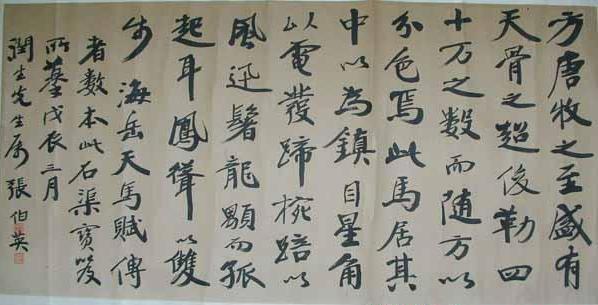 方唐牧之至盛有
天骨之超俊勒四
十万之数而随方以
分色焉此馬居其
中以為鎮目星角
以電發蹄椀踣以
風迅鬐龍顒而孤
起耳鳳聳以雙
步 海岳天馬賦傳
者數本此石渠寶笈
所摹戊辰三月
潤生先生属 張伯英